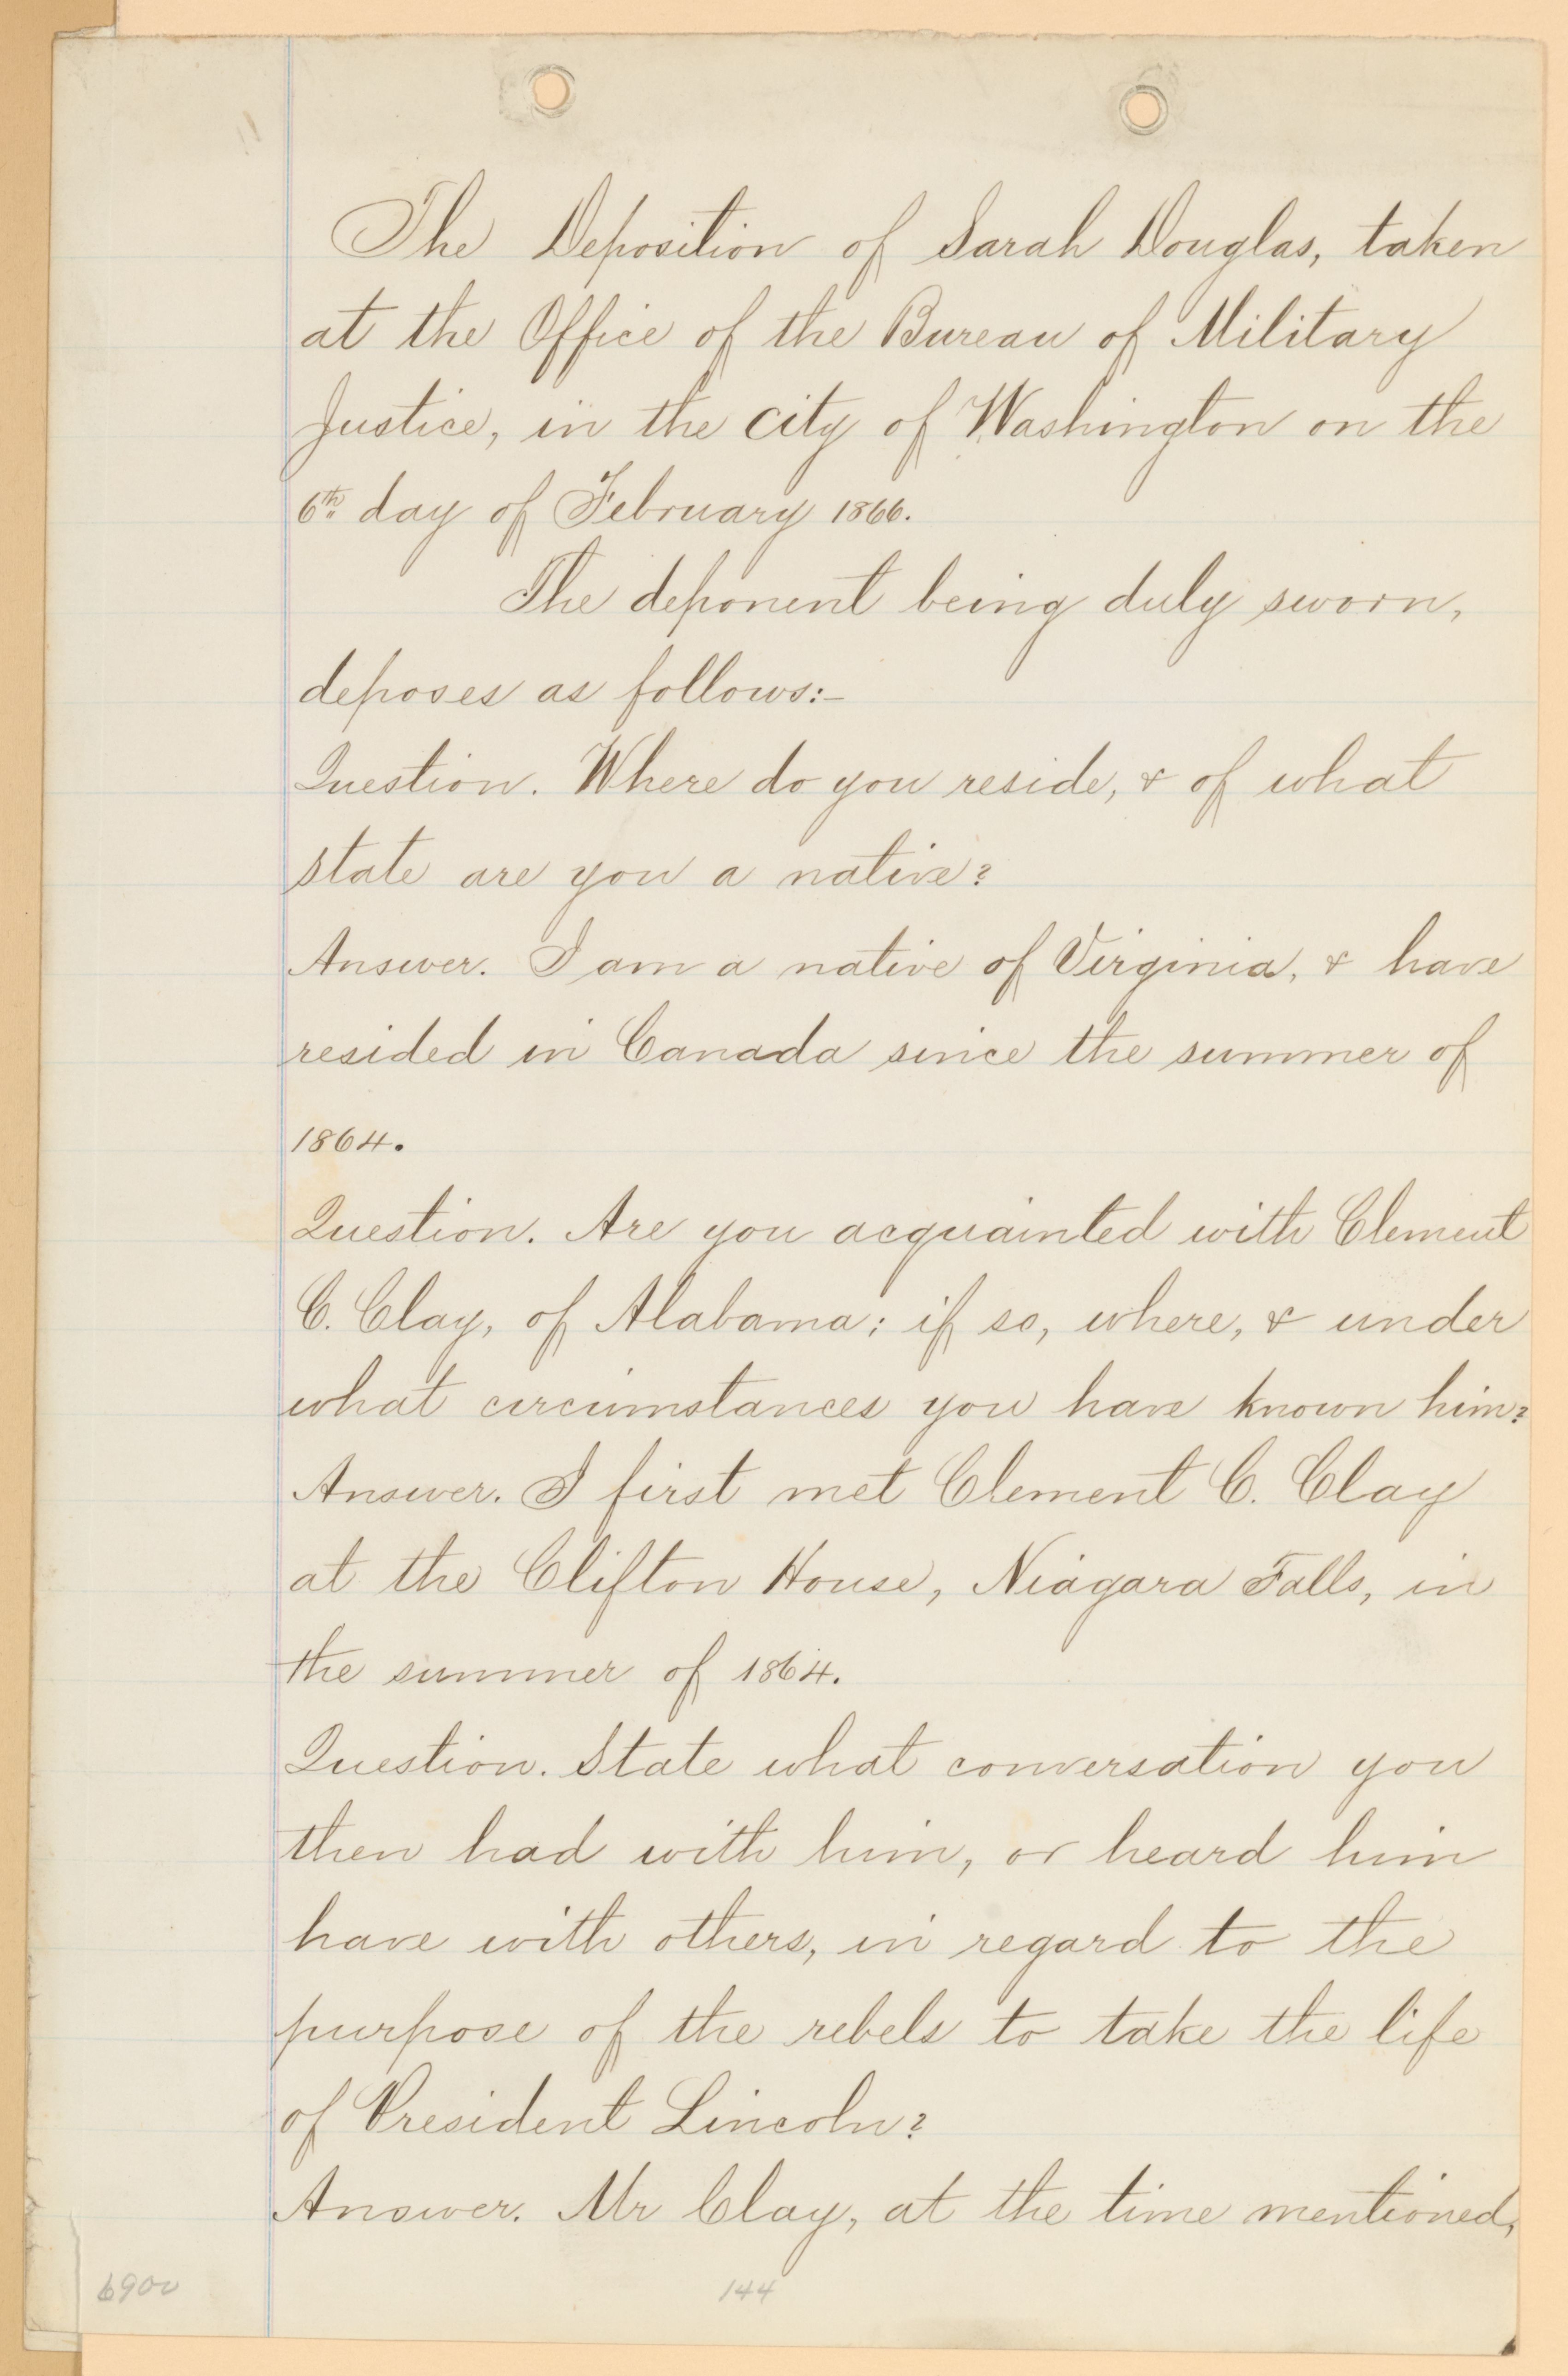 The Deposition of Sarah Douglas, taken
at the Office of the Bureau of Military
Justice, in the city of Washington on the
6th day of February 1866.
The deponent being duly sworn,
deposes as follows:-
Question. Where do you reside, & of what
state are you a native?
Answer. I am a native of Virginia, & have
resided in Canada since the summer of
1864.
Question. Are you acquainted with Clement
C. Clay, of Alabama; if so, where, & under
what circumstances you have known him?
Answer. I first met Clement C. Clay
at the Clifton House, Niagara Falls, in
the summer of 1864.
Question. State what conversation you
then had with him, or heard him
have with others, in regard to the
purpose of the rebels to take the life
of President Lincoln?
Answer. Mr Clay, at the time mentioned,
144